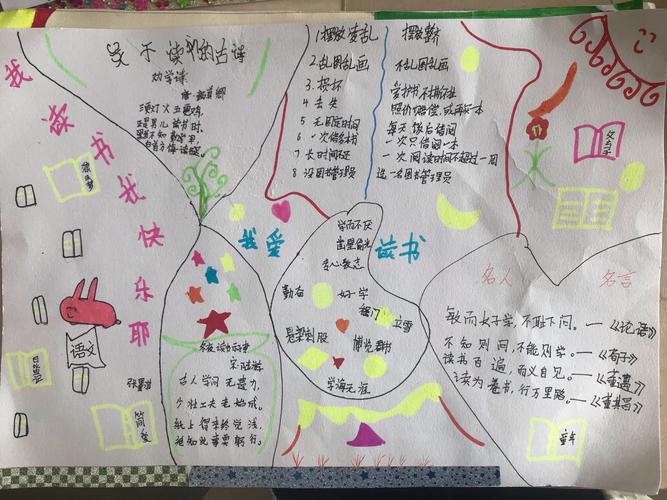 我读书我快乐耶
劝学诗
三更灯火五更鸡
正是男儿读书时
黑发不知勤学早
白首方悔读书迟
1 摆放凌乱
2 乱图乱画
3 损坏
4 丢失
5 无固定时间
6 一次借多书
7 长时间还
8 没图书管理员
摆放整齐
不乱图乱画
爱护书不撕业
照价赔偿,或再买一本
每天饭后借阅
一次只借阅一本
一次阅读时间不超过一周
选一名图书管理员
我爱读书
学而不厌
凿壁偷光
专心致志
勤奋
好学
程门立雪
悬梁刺股
博览群书
学海无涯
冬夜读书示子
宋 陆游
古人学问无遗力,
少壮工夫老始成。
纸上得来终觉浅,
绝知此事要躬行。
名人名言
敏而好学,不耻下问。——《论语》
不知则问,不能则学。——《荀子》
读书百遍,而义自见。——《董遇》
读万卷书,行万里路。——《董其昌》
语文
简爱
童年